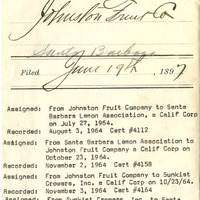 Johnston Fruit Co
Santa Barbara
Filed June 19th, 1897
Assigned: From Johnston Fruit Company to Santa
Barbara Lemon Association, a Calif Corp
on July 27, 1964.
Recorded: August 3, 1964 Cert #4112
Assigned: From Santa Barbara Lemon Association to
Johnston Fruit Company a Calif Corp on
October 23, 1964.
Recorded: November 2, 1964 Cert #4158
Assigned: From Johnston Fruit Company to Sunkist
Growers, Inc. a Calif Corp on 10/23/64.
Recorded: November 3, 1964 Cert #4164
Assigned: From Sunkist Growers, Inc. to Santa